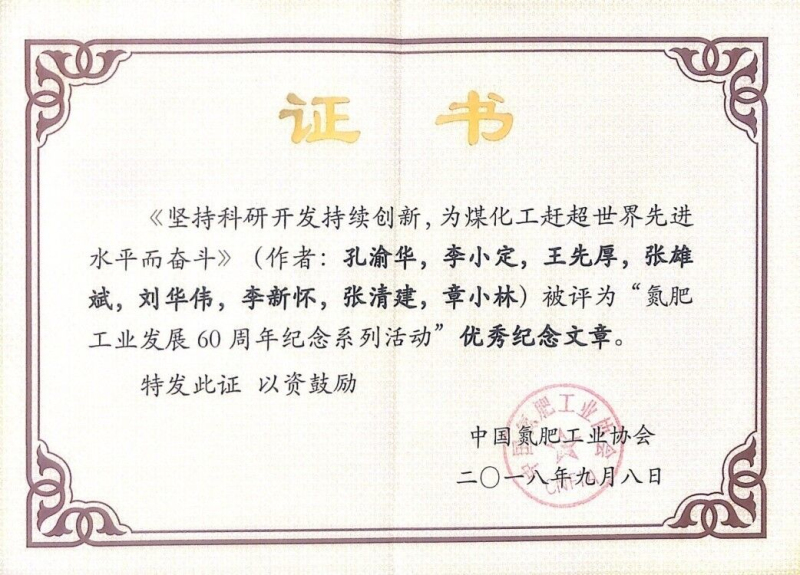 证 书
《坚持科研开发持续创新，为煤化工赶超世界先进
水平而奋斗》（作者：孔渝华，李小定，王先厚，张雄
斌，刘华伟，李新怀，张清建，章小林）被评为“氮肥
工业发展60周年纪念系列活动”优秀纪念文章。
特发此证 以资鼓励
中国氮肥工业协会
中国氮肥工业协会
二〇一八年九月八日